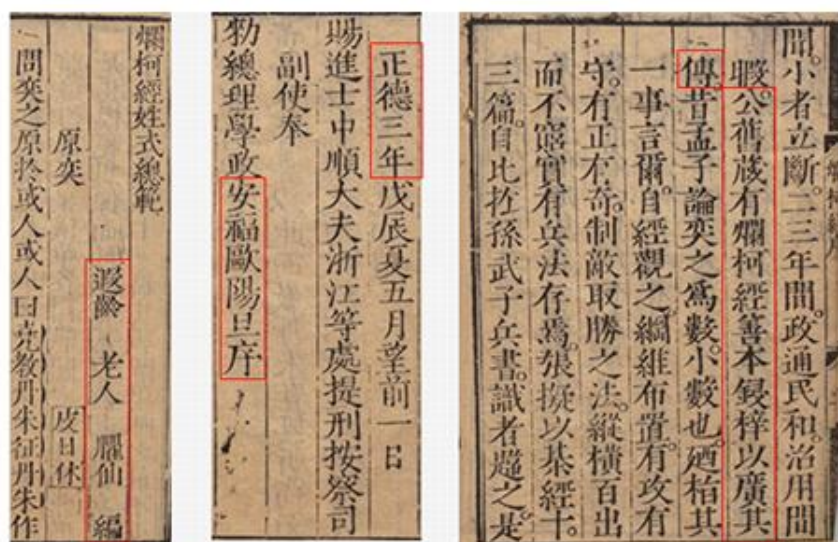 爛柯經姓式總範
遐齡 老人 臞仙 編
原奕 皮日休
問奕之原於或人或人曰堯教丹朱征丹朱作
正德三年戊辰夏五月望前一日
賜進士中順大夫浙江等處提刑按察司
副使奉
勑總理學政安福歐陽旦序
聞。小者立斷。二三年間。政通民和。治用間
暇。公舊蔵有爛柯經善本鋟梓以廣其
傳。昔孟子論奕之爲數。小數也。廼栢其
一事言爾。自經觀之。綱維布置。有攻有
守。有正有奇。制敵取勝之法。縱橫百出
而不窮。實有兵法存焉。張擬以棊經十
三篇。自比於孫武子兵書。識者韙之。是